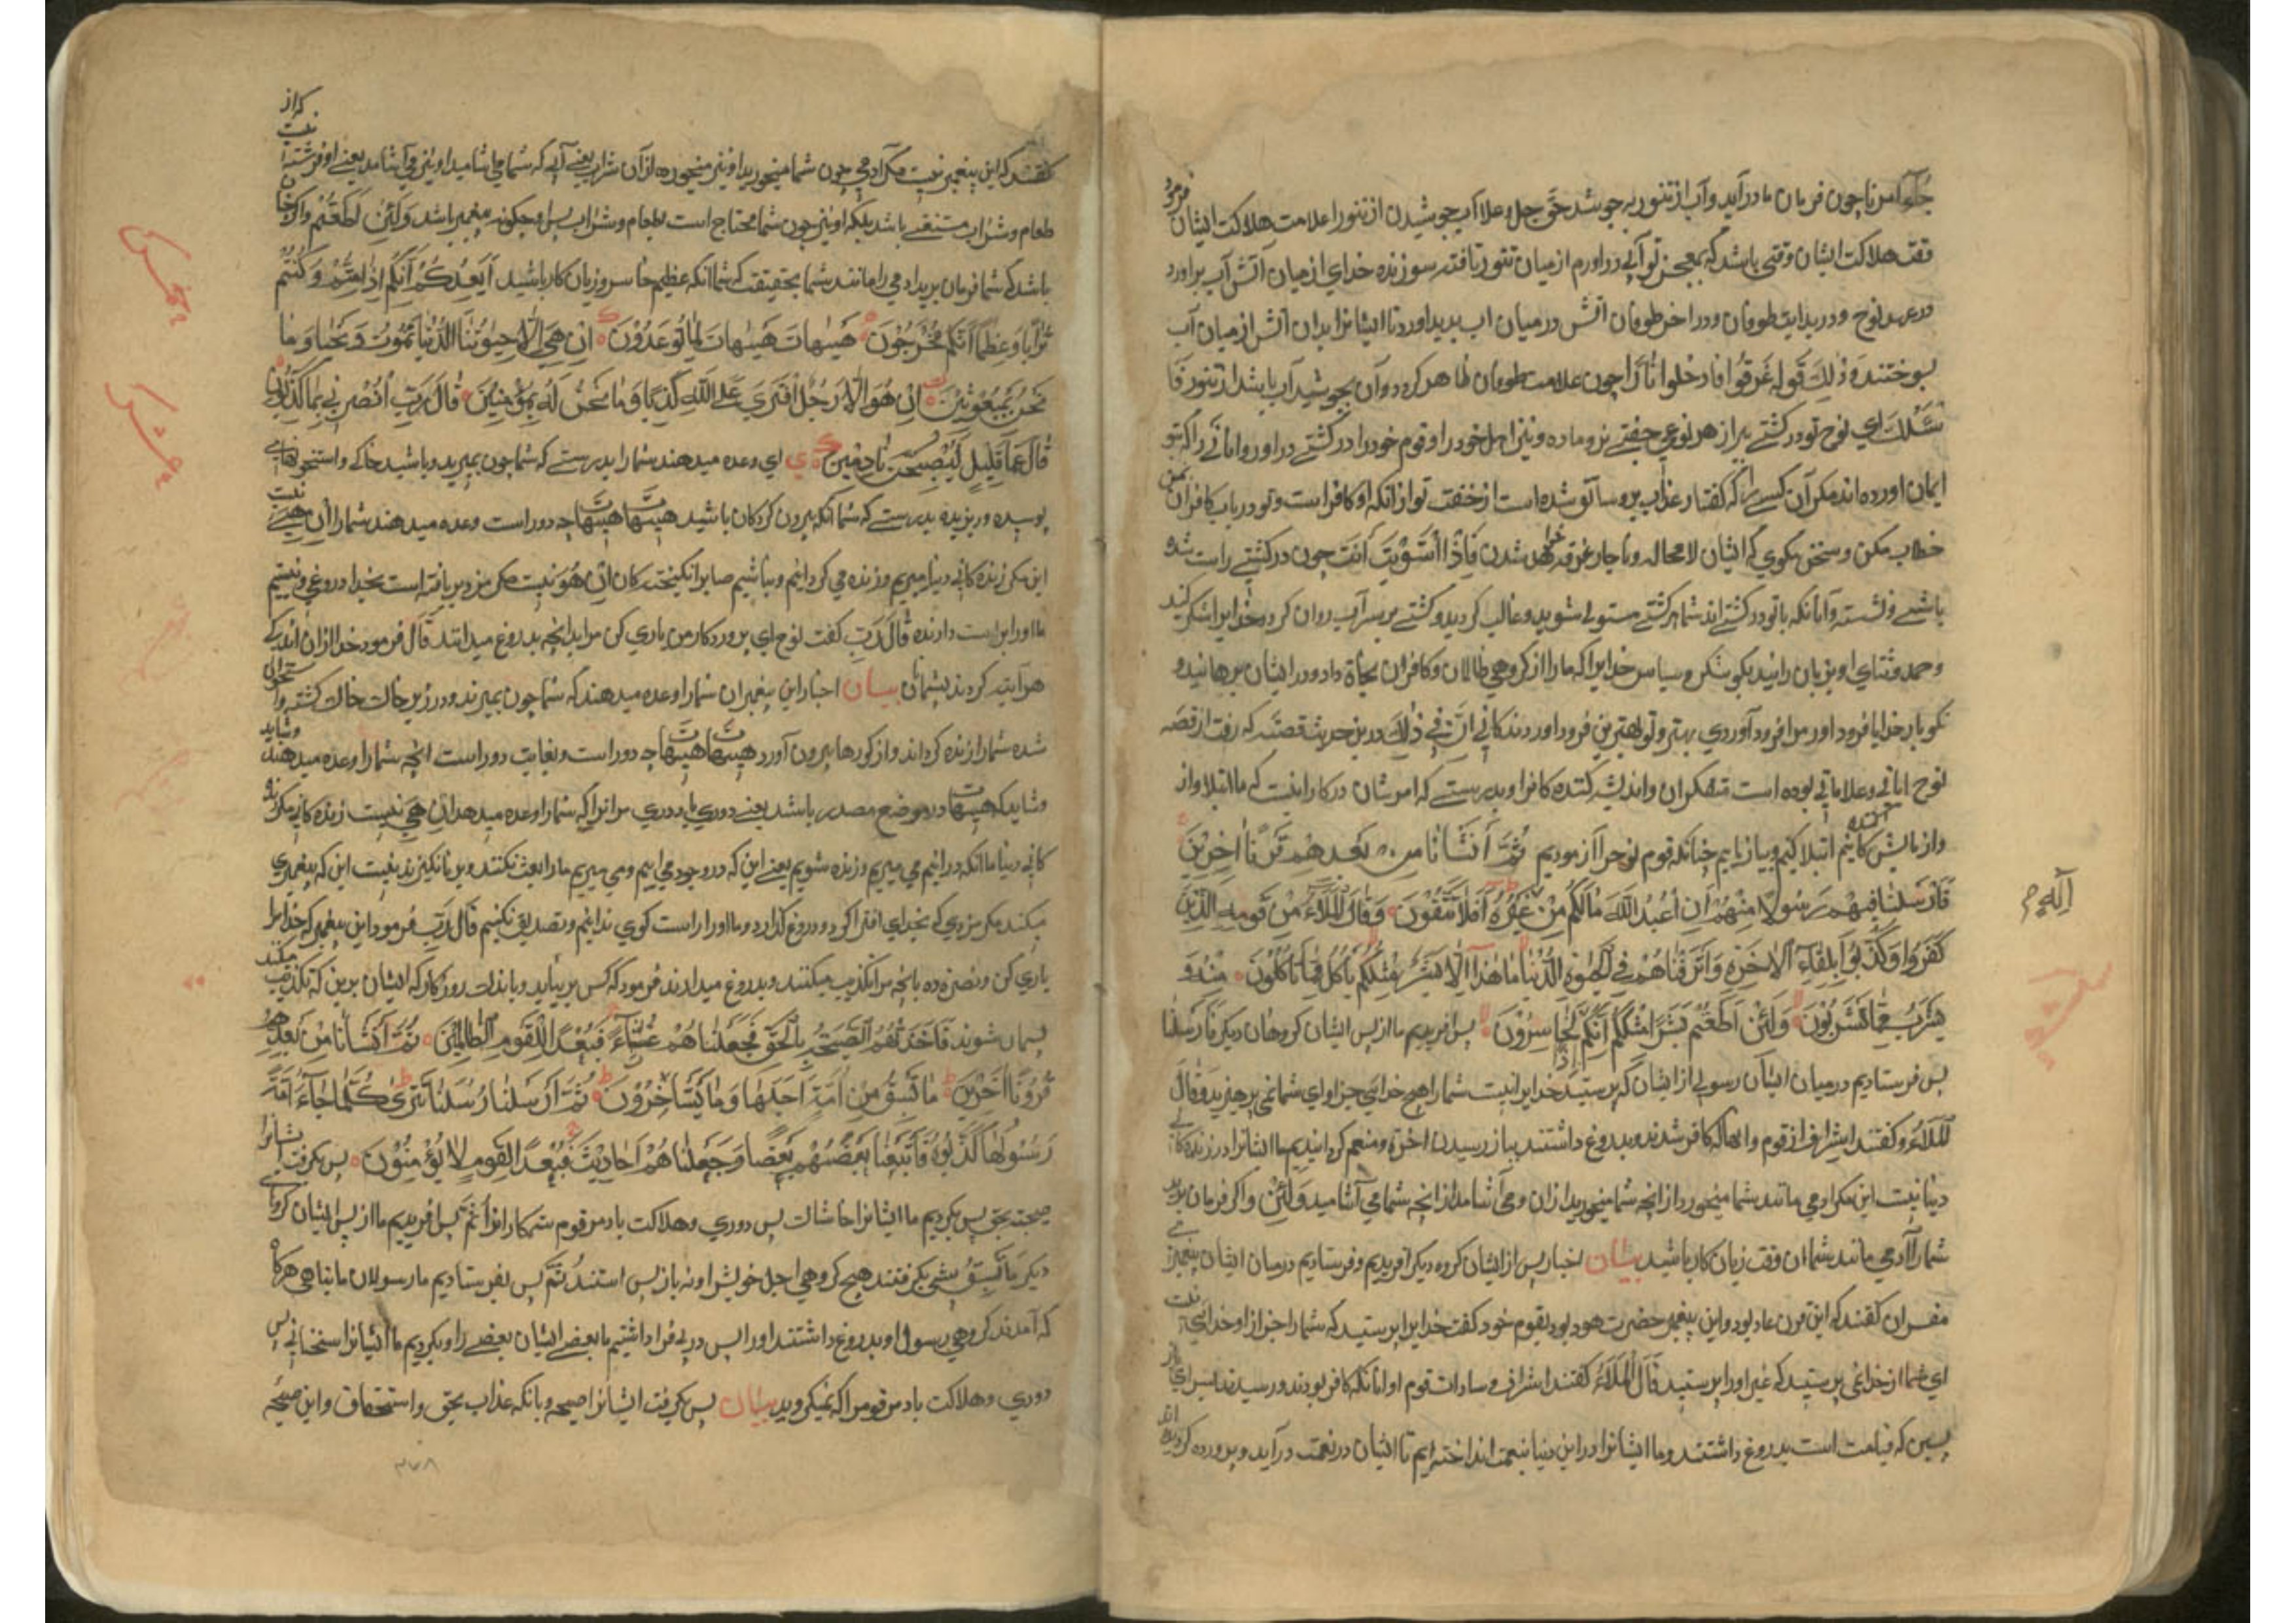 جاء امرنا چون فرمان ما در آید و آب از تنور بر جوشد حق جل و علا آب جوشیدن از تنور را علامت هلاکت ایشان فرمود
وقت هلاکت ایشان وقتی باشد که بمعجز تو آبی در آورم از میان تنور تافته سوزنده خدای از میان آتش آب برآورد
در عهد نوح و در بدایت طوفان و در آخر طوفان آتش در میان آب پدید آورد تا ایشانرا بدان آتش از میان آب
بسوختند و ذلك قوله غرقوا فادخلوا نارا چون علامت طوفان ظاهر کردد و آن بجوشید آب باشد از تنور فا
سلك ای نوح تو در کشتی بر از هر نوعی جفتی نر و ماده و نیز اهل خود را و قوم خود را در کشتی درآور و آنانی را که بتو
ایمان آورده اند مکر آن کسی را که گفتار و عذاب برو سابق شده است از خفت تو از آنکه او کافر است و تو در باب کافران بمن
خطاب مکن و سخن مکوی که ایشان لا محاله و ناچار غرقه خواهند شدن فاذا استویت انت چون در کشتی راست شو
باشی و نشسته و آنانکه با تو در کشتی اند شما بر کشتی مستولی شوید و غالب کردید و کشتی بر سر آب روان کردد خدایرا شکر کنید
و حمد و ثنای او بر زبان رانید بکو شکر و سپاس خدایرا که ما را از کروهی ظالمان و کافران نجاة داد و در ایشان برهانید و
بکو بار خدایا فرود آور مرا فرود آوردی بهتر و تو بهترین فرود آورندکانی ان فی ذلك درین حدیث قصه که رفت از قصه
نوح آیاتی و علاماتی بوده است متفکران و اندیشه کننده کانرا و بدرستی که امر شان در کار اینست که ما ابتلا و از
و آزمایش کننده ایم ابتلا کنیم و بیازماییم چنانکه قوم نوح را آزمودیم ثُمَّ أَنْشَأْنَا مِنْ بَعْدِهِمْ قَرْنًا آخَرِينَ
فَأَرْسَلْنَا فِيهِمْ رَسُولًا مِنْهُمْ أَنِ اعْبُدُوا اللَّهَ مَا لَكُمْ مِنْ إِلَهٍ غَيْرُهُ أَفَلَا تَتَّقُونَ وَقَالَ الْمَلَأُ مِنْ قَوْمِهِ الَّذِينَ
كَفَرُوا وَكَذَّبُوا بِلِقَاءِ الْآخِرَةِ وَأَتْرَفْنَاهُمْ فِي الْحَيٰوةِ الدُّنْيَا مَا هَذَا إِلَّا بَشَرٌ مِثْلُكُمْ يَأْكُلُ مِمَّا تَأْكُلُونَ مِنْهُ وَ
يَشْرَبُ مِمَّا تَشْرَبُونَ وَلَئِنْ أَطَعْتُمْ بَشَرًا مِثْلَكُمْ إِنَّكُمْ إِذًا لَخَاسِرُونَ پس آفریدیم ما از پس ایشان کروهان دیکر فارسلنا
پس فرستادیم در میان ایشان رسولی از ایشان که پرستید خدایرا نیست شما را هیچ خدایی جز او ای شما نمی پرهیزید و قال
الملاء و کفتند اشراف از قوم و آنها که کافر شدند و بدروغ داشتند بباز رسیدن آخرة و منعم کردانیدیم ما ایشانرا در زنده کانی
دنیا نیست این مکر آدمی مانند شما میخورد از آنچه شما میخورید از آن و می آشامد از آنچه شما می آشامید ولئن و اکر فرمان برید
شما را آدمی مانند شما آن وقت زیان کار باشید بیان اخبار پس از ایشان کروه دیکر آفریدیم و فرستادیم در میان ایشان پیغمبری
مفسران کفتند که این قرن عاد بود و این پیغمبر حضرت هود بود بقوم خود کفت خدایرا پرستید که شما را جز از او خدایی نیست
ای شما از خدای می پرستید که غیر او را پرستید قال الملاء کفتند اشراف و سادات قوم او آنانکه کافر بودند و رسیدند بسرای باز
پسین که قیامت است بدروغ داشتند و ما ایشانرا در این دنیا بنعمت انداخته ایم تا ایشان در نعمت در آید و پرورده کردیده اند
اله م
که از
کفتند که این پیغمبر نیست مکر آدمی چون شما میخورید او نیز میخورد و از آن شراب یعنی آب که شما می آشامید او نیز می آشامد یعنی او فرشته نیست
طعام و شراب مستغنی باشد بلکه او نیز چون شما محتاج است بطعام و شراب پس او چکونه پیغمبر باشد وَلَئِنْ أَطَعْتُمْ و اکر چنان
باشد که شما فرمان برید آدمی را مانند شما بحقیقت که شما آنکه عظیم خاسر و زیان کار باشید أَيَعِدُكُمْ أَنَّكُمْ إِذَا مِتُّمْ وَكُنْتُمْ
تُرَابًا وَعِظَامًا أَنَّكُمْ مُخْرَجُونَ هَيْهَاتَ هَيْهَاتَ لِمَا تُوعَدُونَ إِنْ هِيَ إِلَّا حَيٰوتُنَا الدُّنْيَا نَمُوتُ وَنَحْيَا وَمَا
نَحْنُ بِمَبْعُوثِينَ إِنْ هُوَ إِلَّا رَجُلٌ افْتَرَى عَلَى اللَّهِ كَذِبًا وَمَا نَحْنُ لَهُ بِمُؤْمِنِينَ قَالَ رَبِّ انْصُرْنِي بِمَا كَذَّبُونِ
قَالَ عَمَّا قَلِيلٍ لَيُصْبِحُنَّ نَادِمِينَ ای وعده میدهند شما را بدرستی که شما چون بمیرید و باشید خاکی و استخوانهای
پوسیده و ریزیده بدرستی که شما آنکه بیرون کردکان باشید هیهات هیهات چه دور است وعده میدهند شما را ان هی نیست
این مکر زنده کانی دنیا میریم و زنده می کردانیم و نباشیم ما برانکیخته کان ان هو نیست مکر مردی بربافته است بخدا دروغی و نیستیم
ما او را براست دارنده قال رب کفت نوح ای پروردکار من یاری کن مرا بدانچه بدروغ میدانند قال فرمود خدا از زمان اندکی
هرآینه کردند پشیمان بیان اخبار این پیغمبران شما را وعده میدهند که شما چون بمیرند و در زیر خاک خاک کشته و استخوان
شده شما را زنده کرداند و از کورها بیرون آورد هیهات هیهات چه دور است و بغایت دور است آنچه شما را وعده میدهند و شاید
و شاید که هیهات در موضع مصدر باشد یعنی دوری باد دوری مر آنرا که شما را وعده میدهد ان هی نیست زنده کانی مکر زنده
کانی دنیا ما آنکه در آنیم می میریم و زنده شویم یعنی این که در وجود می آییم و می میریم ما را بعث نکنند و برنانکیزند نیست این که پیغمبری
میکند مکر مردی که بخدای افترا کرد و دروغ کذارد و ما او را راست کوی ندانیم و تصدیق نکنیم قال رب فرمود این پیغمبر که خدایرا
یاری کن و نصرة ده بانچه مرا تکذیب میکنند و بدروغ میدارند فرمود که پس بر نیاید و باندك روزکار که ایشان برین که تکذیب میکنند
پشیمان شوند فَأَخَذَتْهُمُ الصَّيْحَةُ بِالْحَقِّ فَجَعَلْنَاهُمْ غُثَاءً فَبُعْدًا لِلْقَوْمِ الظَّالِمِينَ ثُمَّ أَنْشَأْنَا مِنْ بَعْدِهِمْ
قُرُونًا آخَرِينَ مَا تَسْبِقُ مِنْ أُمَّةٍ أَجَلَهَا وَمَا يَسْتَأْخِرُونَ ثُمَّ أَرْسَلْنَا رُسُلَنَا تَتْرَى كُلَّمَا جَاءَ أُمَّةً
رَسُولُهَا كَذَّبُوهُ فَأَتْبَعْنَا بَعْضَهُمْ بَعْضًا وَجَعَلْنَاهُمْ أَحَادِيثَ فَبُعْدًا لِقَوْمٍ لَا يُؤْمِنُونَ پس بکرفت ایشانرا
صیحة بحق پس بکردیم ما ایشانرا خاشاك پس دوری و هلاکت باد مر قوم ستمکارانرا ثم پس آفریدیم ما از پس ایشان کروهانی
دیکر ما تسبق پیشی نکرفتند هیچ کروهی اجل خویش را و نه باز پس استند ثم پس بفرستادیم ما رسولان ما پیاپی هرکاه
که آمدند کروهی رسول او بدروغ داشتند او را پس در پی فرا داشتیم ما بعضی ایشان بعضی را و بکردیم ما ایشانرا سخنانی پس
دوری و هلاکت باد مر قومی را که نمیکروید بیان پس بکرفت ایشانرا صیحه و بانکه عذاب بحق و استحقاق و این صیحه
۳۷۸